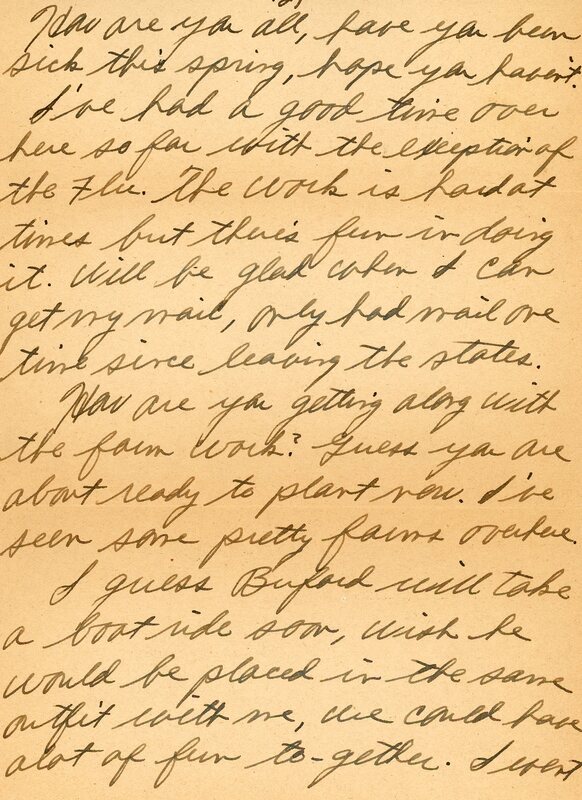 How are you all, have you been
sick this spring, hope you haven't.
I've had a good time over
here so far with the exception of
the Flu. The work is hard at
times but there's fun in doing
it. Will be glad when I can
get my mail, only had mail one
time since leaving the states.
How are you getting along with
the farm work? Guess you are
about ready to plant now. I've
seen some pretty farms over here.
I guess Buford will take
a boat ride soon, wish he
would be placed in the same
outfit with me, we could have
alot of fun to-gether. I went